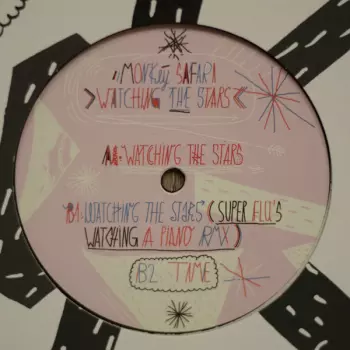 MONKEY SAFARI
>WATCHING THE STARS<
A1: WATCHING THE STARS
B1: WATCHING THE STARS (SUPER FLU'S
WATCHING A PIANO RMX)
B2 TIME